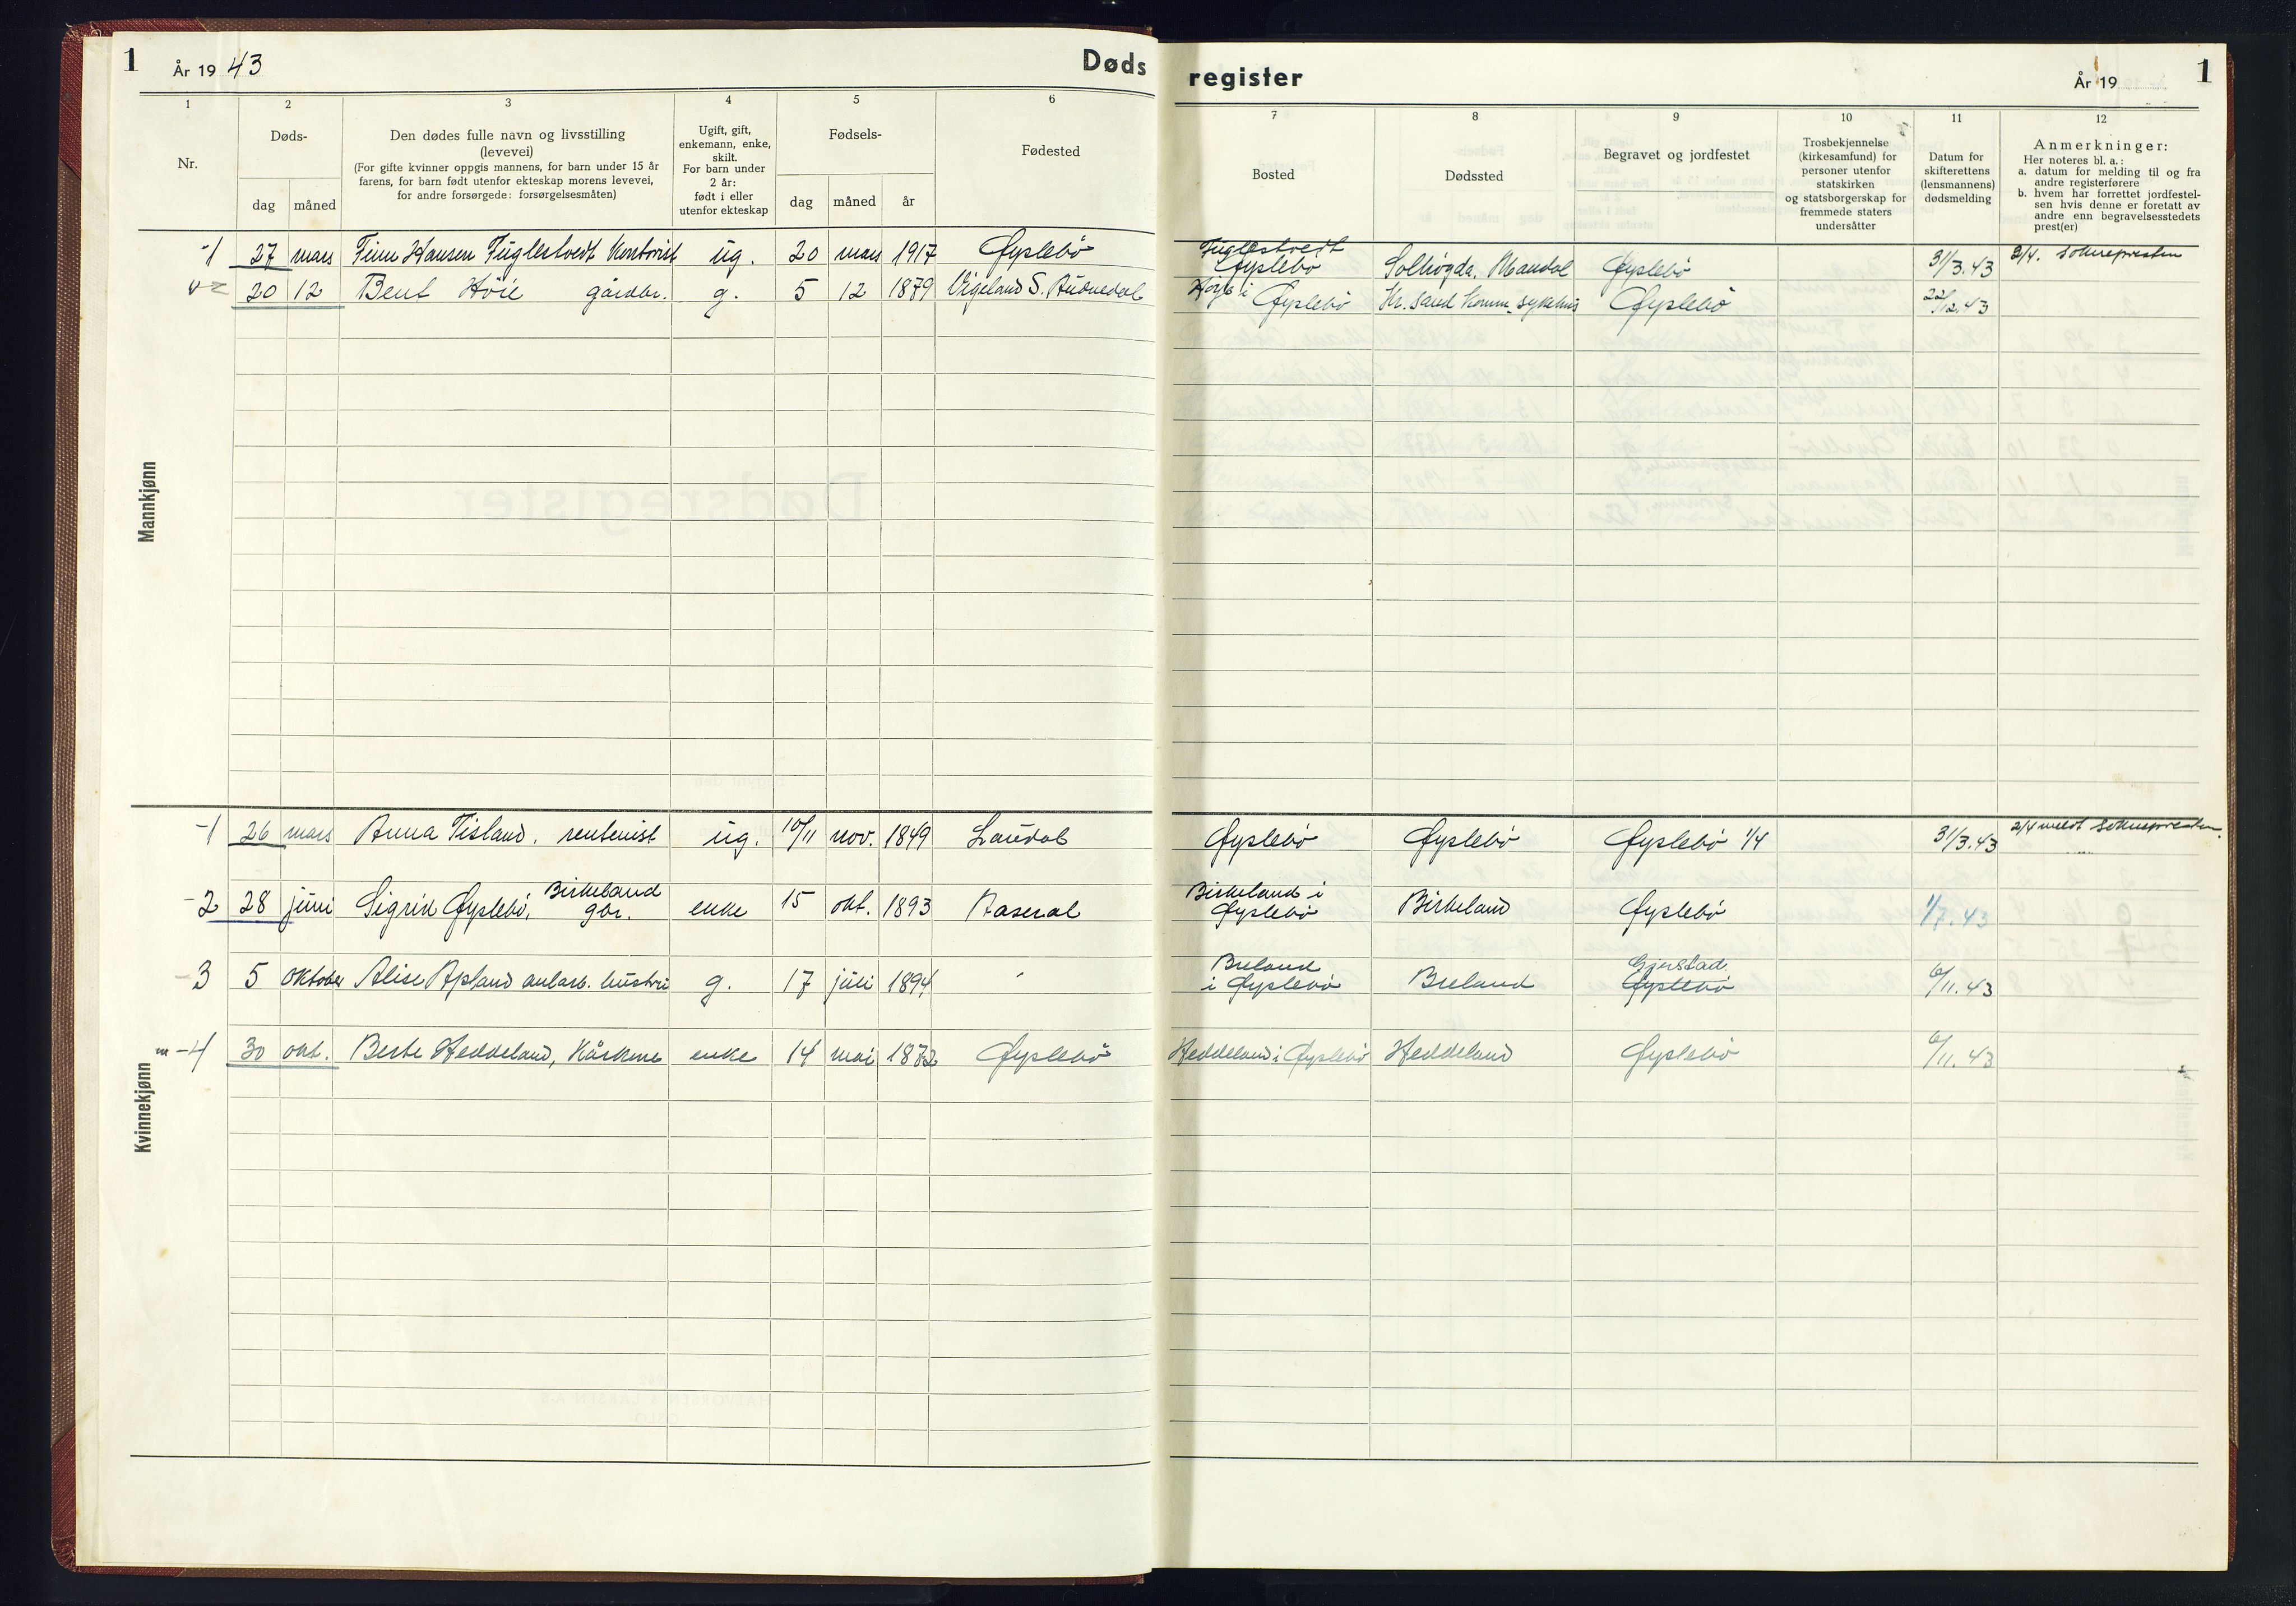 1 År 1943 Døds
register År 19 1
1 2 3 4 5 6
7 8 9 10 11 12
Nr.
Døds-
dag måned
Den dødes fulle navn og livsstilling
(levevei)
(For gifte kvinner oppgis mannens, for barn under 15 år
farens, for barn født utenfor ekteskap morens levevei,
for andre forsørgede: forsørgelsesmåten)
Ugift, gift,
enkemann, enke,
skilt.
For barn under
2 år:
født i eller
utenfor ekteskap
Fødsels-
dag måned år
Fødested
Bosted
Dødssted
Begravet og jordfestet
Trosbekjennelse
(kirkesamfund) for
personer utenfor
statskirken
og statsborgerskap for
fremmede staters
undersåtter
Datum for
skifterettens
(lensmannens)
dødsmelding
Anmerkninger:
Her noteres bl. a.:
a. datum for melding til og fra
andre registerførere
b. hvem har forrettet jordfestel-
sen hvis denne er foretatt av
andre enn begravelsesstedets
prest(er)
Mannkjønn
1 27 mars Finn Hansen Fuglestvedt Kontorist ug. 20 mars 1917 Øyslebö Fuglestvedt
Øyslebö Solhögda, Mandal Øyslebö 31/3.43 2/4. Soknepresten
2 20 12 Bent Höie gårdbr. g. 5 12 1879 Vigeland S. Audnedal i Øyslebö Kr. sand Komm. sykehus Øyslebö 22/12.43
Kvinnekjønn
-1 26 mars Anna Tisland. rentenist ug. 10/11 nov. 1849 Laudal Øyslebö Øyslebö Øyslebö 1/4 31/3.43 2/4 meldt Soknepresten.
-2 28 juni Sigrid Øyslebö, Birkeland
gbr. enke 15 okt. 1893 Aaseral Birkeland i
Øyslebö Birkeland Øyslebö 1/7.43
-3 5 oktober Alise Apland anlarb. hustru g. 17 juli 1894 Breland
i Øyslebö Breland Gjerstad.
Øyslebö 6/11.43
-4 30 okt. Berte Heddeland, Kårkone enke 14 mai 1872 Øyslebö Heddeland i Øyslebö Heddeland Øyslebö 6/11.43